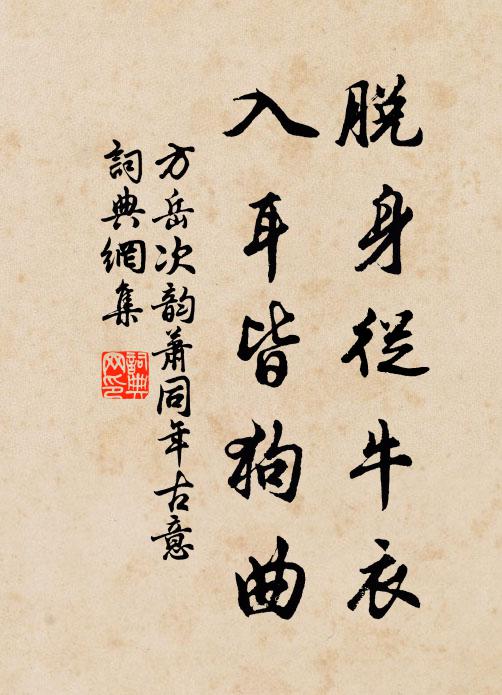 脱身從牛衣
入耳皆狗曲
方岳次韵蕭同年古意
詞典網集
詞典网印